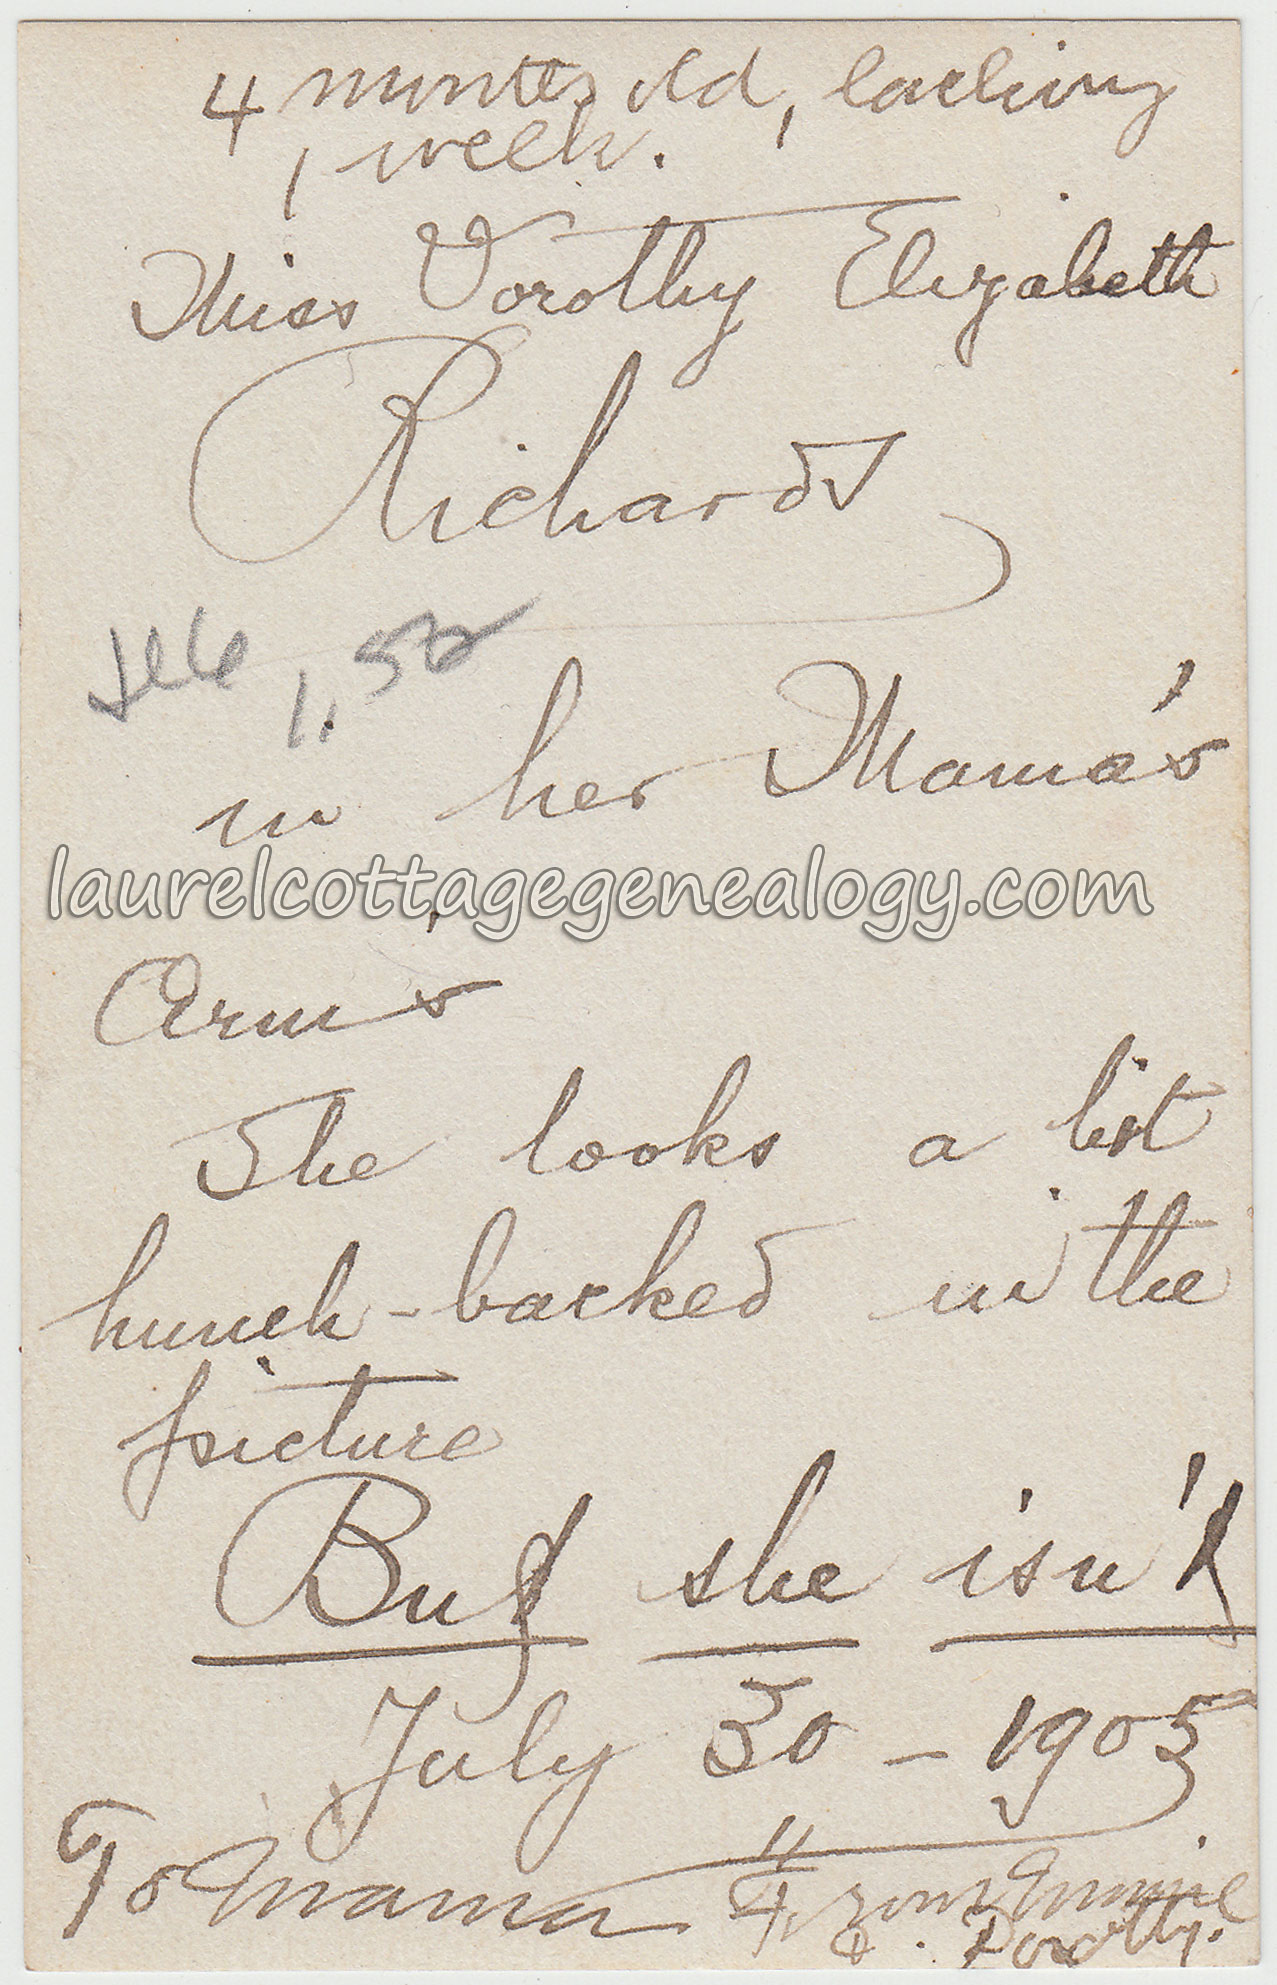 4 months old, lacking
1 week.
Miss Dorothy Elizabeth
Richards
1.50
in her Mama's
laurelcottagegenealogy.com
Arms
She looks a bit
hunch-backed in the
picture
But she isn't
July 30 - 1905
To Mama From Minnie
& Dorothy.